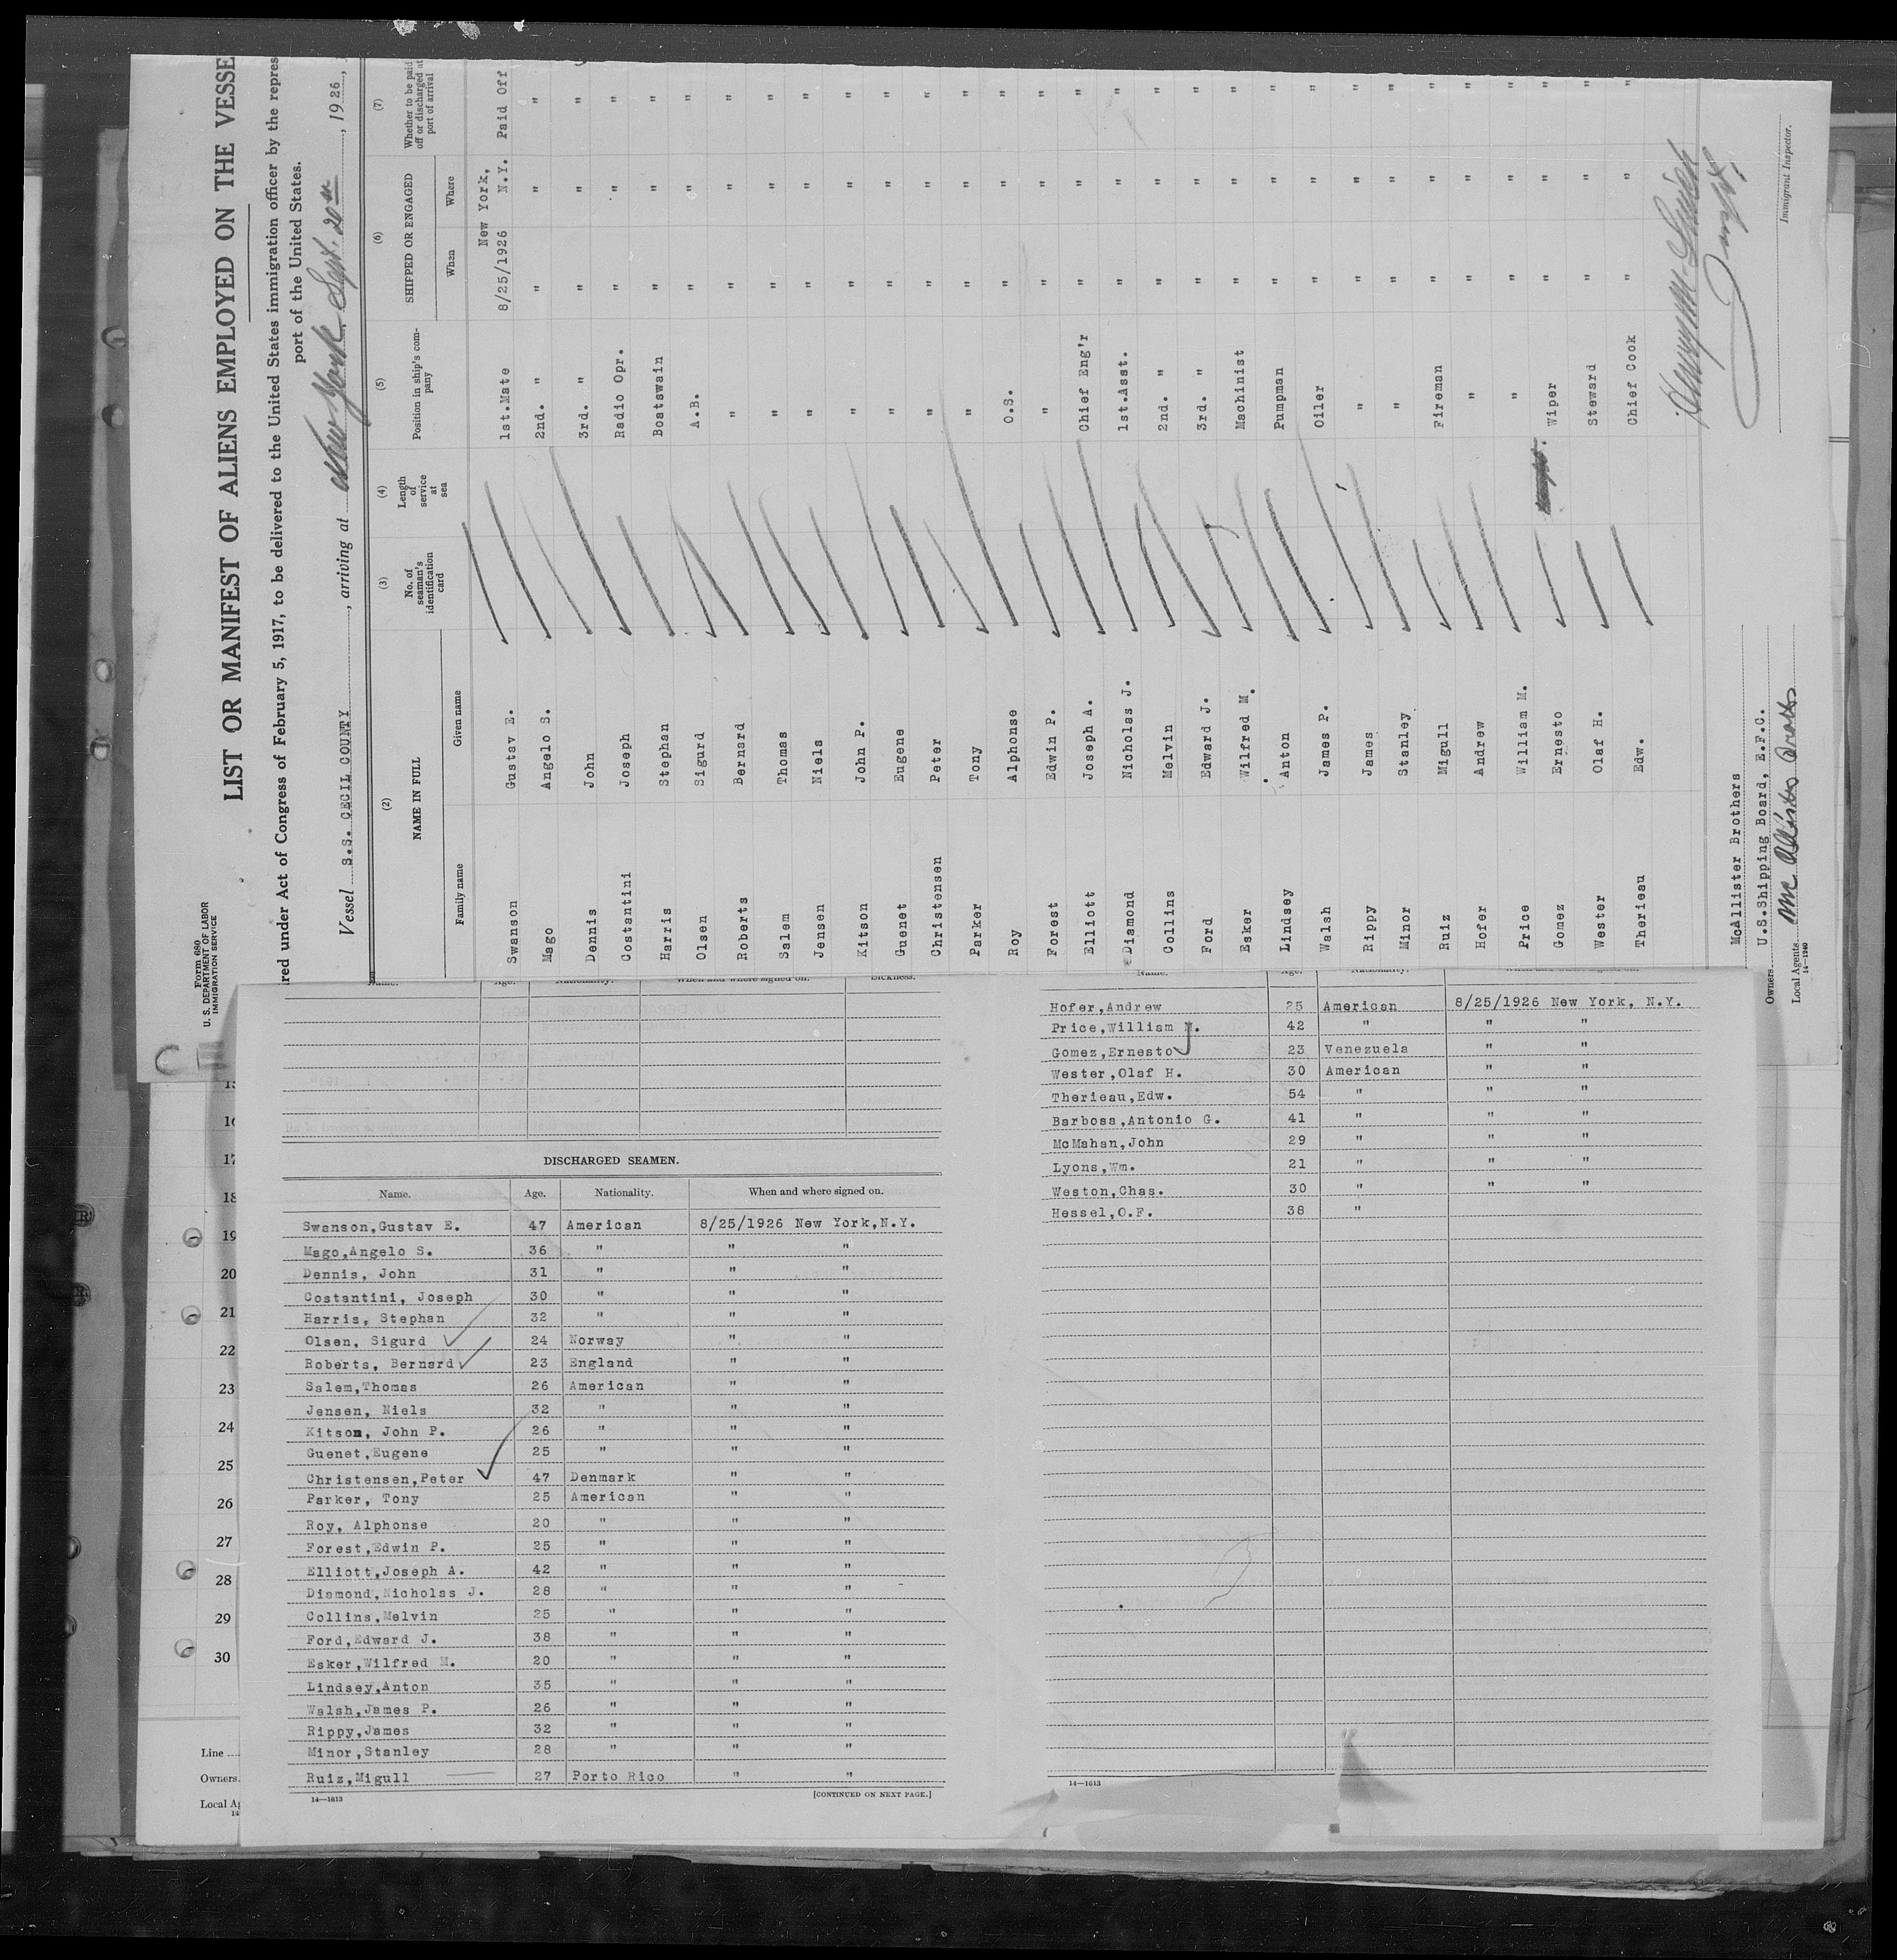 Form 680
U. S. DEPARTMENT OF LABOR
IMMIGRATION SERVICE
LIST OR MANIFEST OF ALIENS EMPLOYED ON THE VESSE
red under Act of Congress of February 5, 1917, to be delivered to the United States immigration officer by the repres
port of the United States.
Vessel S.S. CECIL COUNTY, arriving at New York Sept. 20th, 1926,
(2) (3) (4) (5) (6) (7)
NAME IN FULL No. of seaman's identification card Length of service at sea Position in ship's company SHIPPED OR ENGAGED Whether to be paid off or discharged at port of arrival
Family name Given name When Where
New York,
Swanson Gustav E. 1st.Mate 8/25/1926 N.Y. Paid Off
Mago Angelo S. 2nd. " " " "
Dennis John 3rd. " " " "
Costantini Joseph Radio Opr. " " "
Harris Stephan Boatswain " " "
Olsen Sigurd A.B. " " "
Roberts Bernard " " " "
Salem Thomas " " " "
Jensen Niels " " " "
Kitson John P. " " " "
Guenet Eugene " " " "
Christensen Peter " " " "
Parker Tony " " " "
Roy Alphonse O.S. " " "
Forest Edwin P. " " " "
Elliott Joseph A. Chief Eng'r " " "
Diamond Nicholas J. 1st.Asst. " " "
Collins Melvin 2nd. " " " "
Ford Edward J. 3rd. " " " "
Esker Wilfred M. Machinist " " "
Lindsey Anton Pumpman " " "
Walsh James P. Oiler " " "
Rippy James " " " "
Minor Stanley " " " "
Ruiz Migull Fireman " " "
Hofer Andrew " " " "
Price William M. " " " "
Gomez Ernesto Wiper " " "
Wester Olaf H. Steward " " "
Therieau Edw. Chief Cook " " "
McAllister Brothers
Owners U.S.Shipping Board, E.F.C.
Local Agents
14-1240
Immigrant Inspector.
Name. Age. Nationality. When and where signed on. Sickness.
DISCHARGED SEAMEN.
Name. Age. Nationality. When and where signed on.
Swanson,Gustav E. 47 American 8/25/1926 New York,N.Y.
Mago,Angelo S. 36 " " "
Dennis, John 31 " " "
Costantini, Joseph 30 " " "
Harris, Stephan 32 " " "
Olsen, Sigurd 24 Norway " "
Roberts, Bernard 23 England " "
Salem,Thomas 26 American " "
Jensen, Niels 32 " " "
Kitson, John P. 26 " " "
Guenet,Eugene 25 " " "
Christensen,Peter 47 Denmark " "
Parker, Tony 25 American " "
Roy, Alphonse 20 " " "
Forest,Edwin P. 25 " " "
Elliott,Joseph A. 42 " " "
Diamond,Nicholas J. 28 " " "
Collins,Melvin 25 " " "
Ford,Edward J. 38 " " "
Esker,Wilfred M. 20 " " "
Lindsey,Anton 35 " " "
Walsh,James P. 26 " " "
Rippy,James 32 " " "
Minor,Stanley 28 " " "
Ruiz,Migull 27 Porto Rico " "
14—1613 [CONTINUED ON NEXT PAGE.]
Name. Age. Nationality. When and where signed on.
Hofer,Andrew 25 American 8/25/1926 New York, N.Y.
Price,William M. 42 " " "
Gomez,Ernesto 23 Venezuela " "
Wester,Olaf H. 30 American " "
Therieau,Edw. 54 " " "
Barbosa,Antonio G. 41 " " "
McMahan,John 29 " " "
Lyons,Wm. 21 " " "
Weston,Chas. 30 " " "
Hessel,O.F. 38 "
14—1613
15
16
17
18
19
20
21
22
23
24
25
26
27
28
29
30
Line
Owners
Local Ag
14